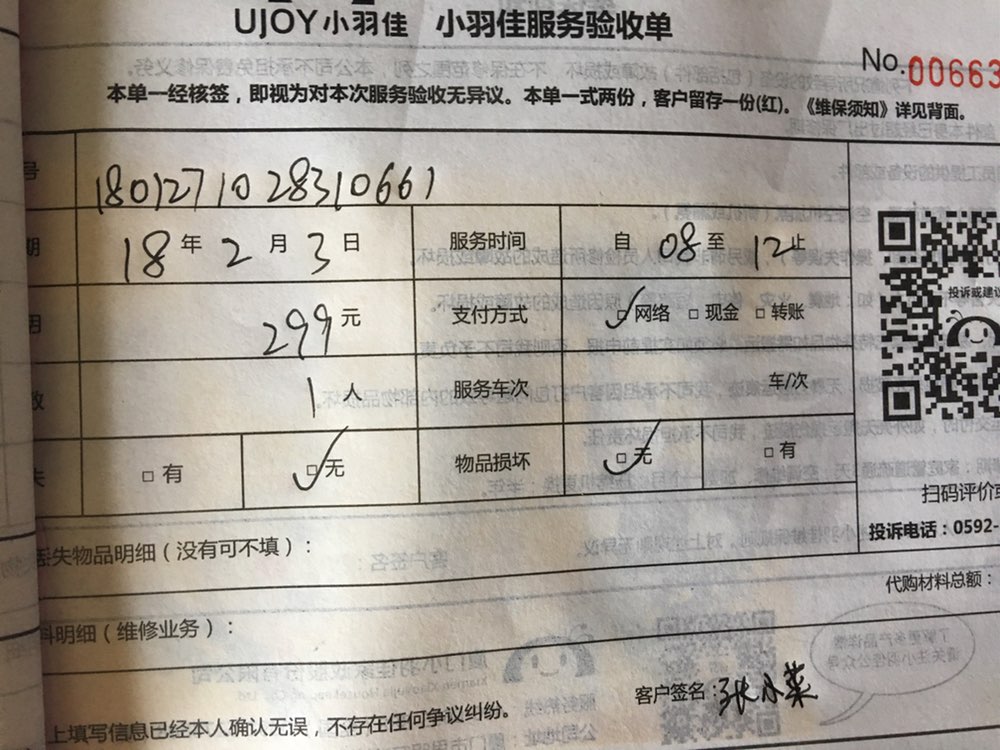 UJOY小羽佳 小羽佳服务验收单
No.00663
本单一经核签，即视为对本次服务验收无异议。本单一式两份，客户留存一份(红)。《维保须知》详见背面。
号 1801271028310661
期 18 年 2 月 3 日 服务时间 自 08 至 12 止
投诉或建议
用 299 元 支付方式 ☑网络 □现金 □转账
数 1 人 服务车次 车/次
失 □有 ☑无 物品损坏 ☑无 □有
扫码评价或
投诉电话：0592-
丢失物品明细（没有可不填）：
代购材料总额：
料明细（维修业务）：
客户签名：张小菜
上填写信息已经本人确认无误，不存在任何争议纠纷。